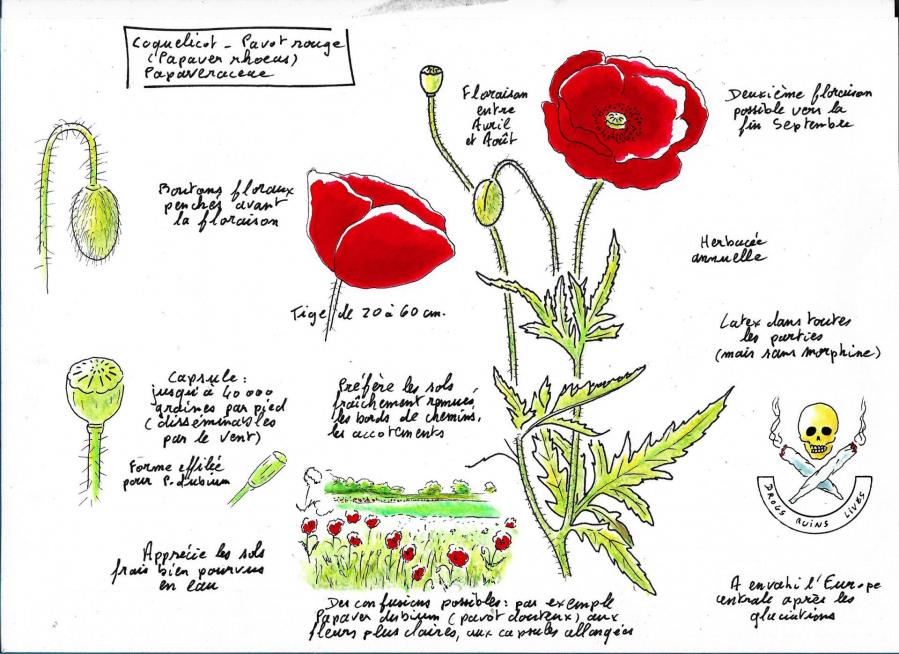 Coquelicot - Pavot rouge
(Papaver rhoeas)
Papaveraceae
Floraison
entre
Avril
et Août
Deuxième floraison
possible vers la
fin Septembre
Boutons floraux
penchés avant
la floraison
Herbacée
annuelle
Tige de 20 à 60 cm.
Latex dans toutes
les parties
(mais sans morphine)
Capsule :
jusqu'à 40 000
graines par pied
(disséminables
par le vent)
Préfère les sols
fraîchement remués,
les bords de chemins,
les accotements
Forme effilée
pour P. dubium
DROGS RUINS LIVES
Apprécie les sols
frais bien pourvus
en eau
Des confusions possibles : par exemple
Papaver dubium (pavot douteux) aux
fleurs plus claires, aux capsules allongées
A envahi l'Europe
centrale après les
glaciations